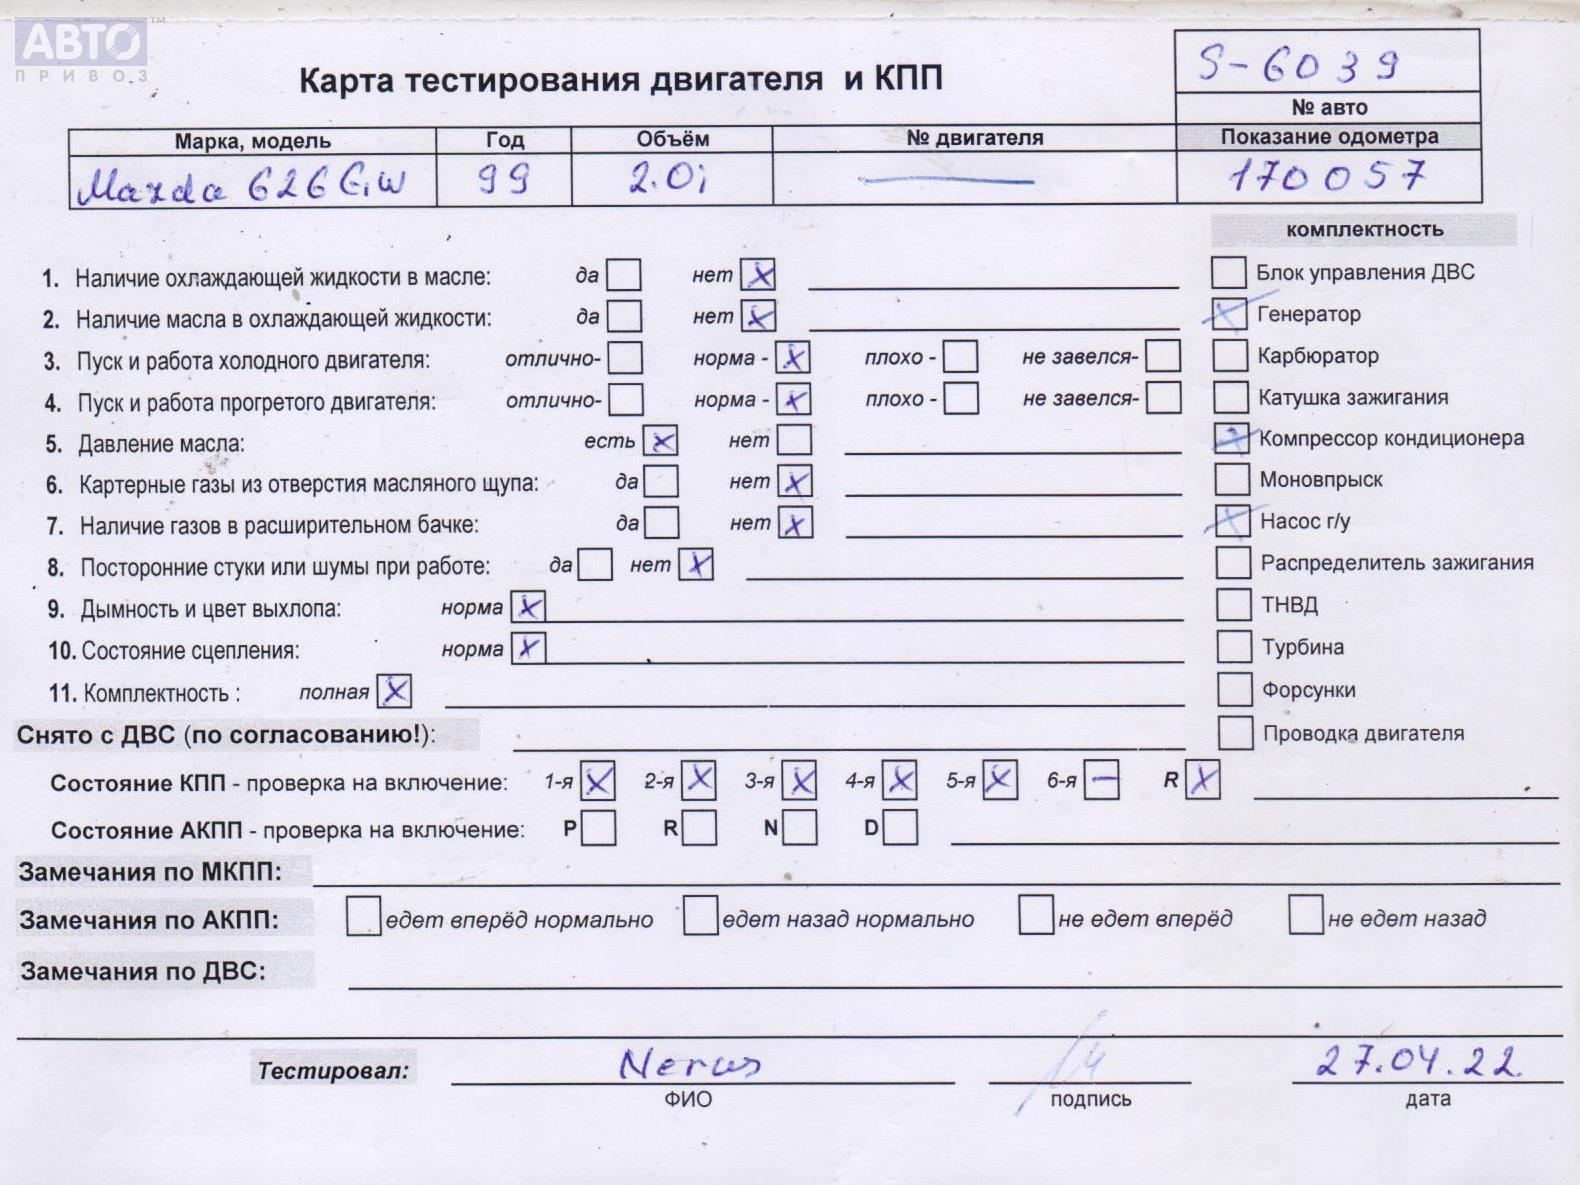 АВТО™
ПРИВОЗ
Карта тестирования двигателя и КПП
S-6039
№ авто
Марка, модель Год Объём № двигателя Показание одометра
Mazda 626 GW 99 2.0i — 170057
комплектность
1. Наличие охлаждающей жидкости в масле: да нет X Блок управления ДВС
2. Наличие масла в охлаждающей жидкости: да нет X X Генератор
3. Пуск и работа холодного двигателя: отлично- норма - X плохо - не завелся- Карбюратор
4. Пуск и работа прогретого двигателя: отлично- норма - X плохо - не завелся- Катушка зажигания
5. Давление масла: есть X нет X Компрессор кондиционера
6. Картерные газы из отверстия масляного щупа: да нет X Моновпрыск
7. Наличие газов в расширительном бачке: да нет X X Насос г/у
8. Посторонние стуки или шумы при работе: да нет X Распределитель зажигания
9. Дымность и цвет выхлопа: норма X ТНВД
10. Состояние сцепления: норма X Турбина
11. Комплектность : полная X Форсунки
Снято с ДВС (по согласованию!): Проводка двигателя
Состояние КПП - проверка на включение: 1-я X 2-я X 3-я X 4-я X 5-я X 6-я — R X
Состояние АКПП - проверка на включение: P R N D
Замечания по МКПП:
Замечания по АКПП: едет вперёд нормально едет назад нормально не едет вперёд не едет назад
Замечания по ДВС:
Тестировал: Nerus 27.04.22.
ФИО подпись дата